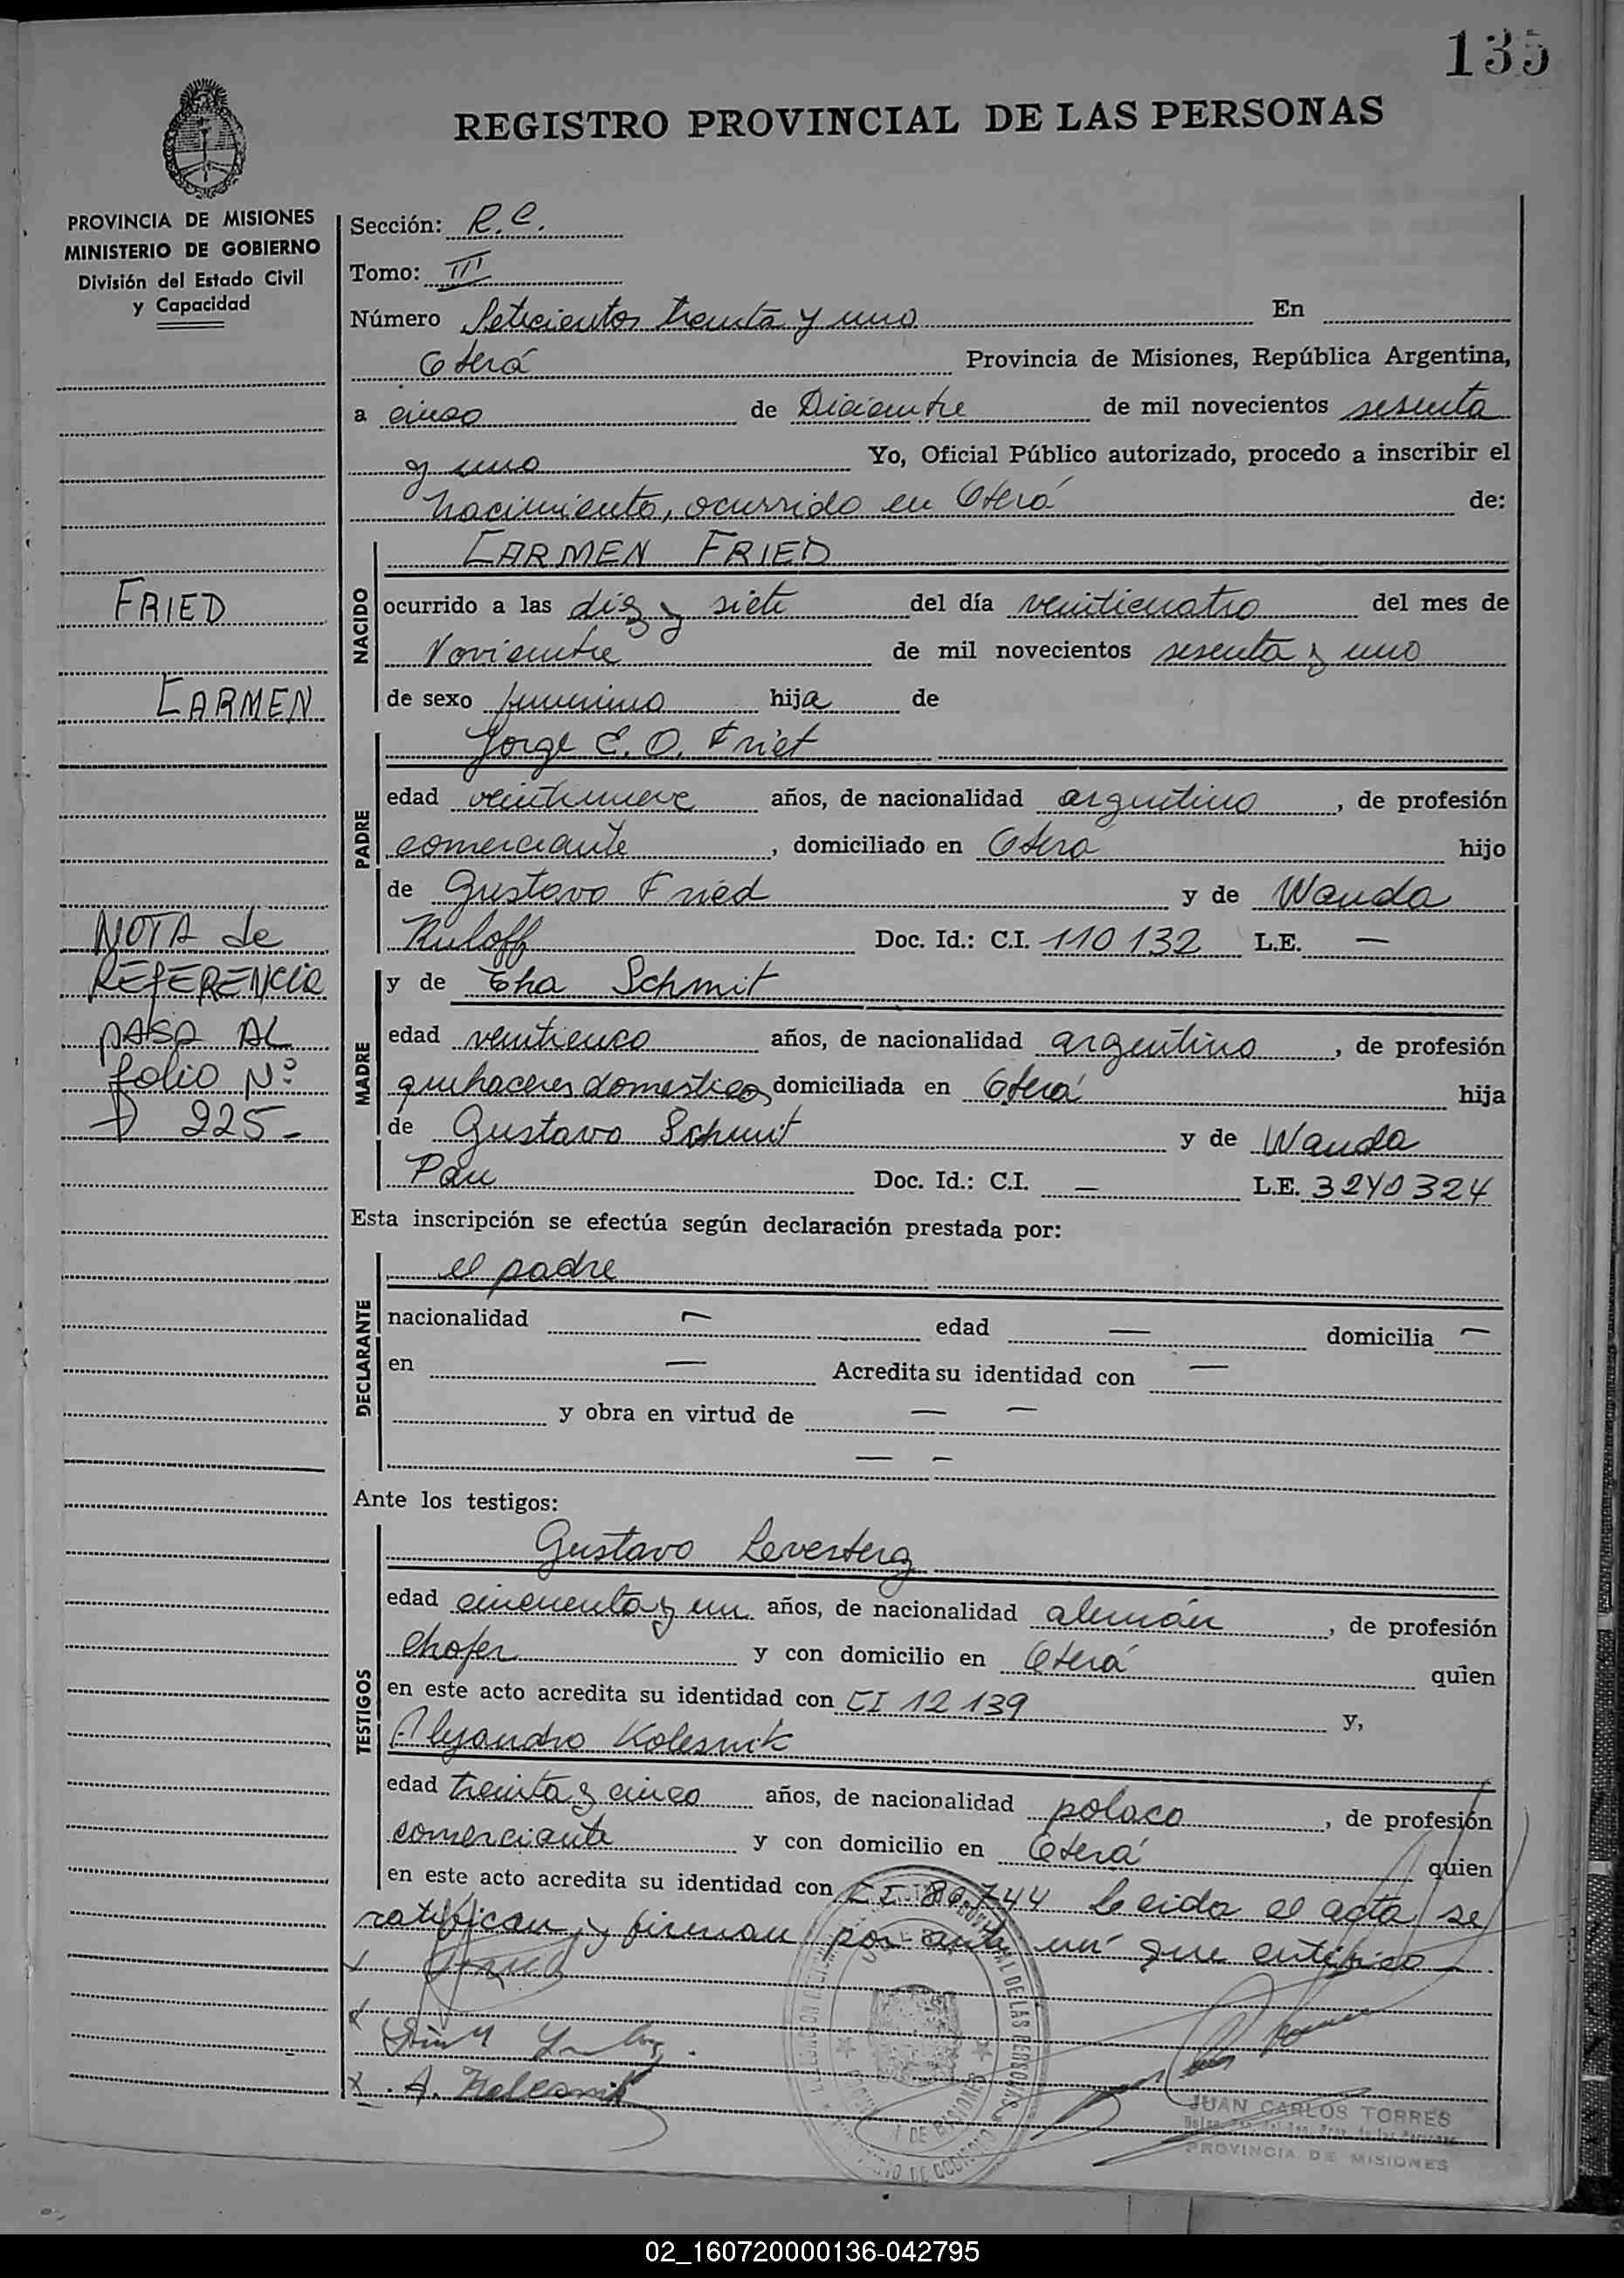 135
REGISTRO PROVINCIAL DE LAS PERSONAS
PROVINCIA DE MISIONES
MINISTERIO DE GOBIERNO
División del Estado Civil
y Capacidad
FRIED
CARMEN
NOTA de
REFERENCIA
PASA AL
folio Nº
225-
Sección: R.C.
Tomo: III
Número Setecientos treinta y uno En
Oberá Provincia de Misiones, República Argentina,
a cinco de Diciembre de mil novecientos sesenta
y uno Yo, Oficial Público autorizado, procedo a inscribir el
nacimiento, ocurrido en Oberá de:
NACIDO
CARMEN FRIED
ocurrido a las diez y siete del día veinticuatro del mes de
Noviembre de mil novecientos sesenta y uno
de sexo femenino hija de
PADRE
Jorge E. O. Friet
edad veintinueve años, de nacionalidad argentino, de profesión
comerciante, domiciliado en Oberá hijo
de Gustavo Fried y de Wanda
Kuloff Doc. Id.: C.I. 110 132 L.E. —
MADRE
y de Schmit
edad veinticinco años, de nacionalidad argentina, de profesión
quehaceres domesticos, domiciliada en Oberá hija
de Gustavo Schmit y de Wanda
Pau Doc. Id.: C.I. — L.E. 3240324
Esta inscripción se efectúa según declaración prestada por:
DECLARANTE
el padre
nacionalidad — edad — domicilia —
en — Acredita su identidad con —
y obra en virtud de — —
— —
Ante los testigos:
TESTIGOS
Gustavo Leverberg
edad cincuenta y un años, de nacionalidad alemán, de profesión
chofer y con domicilio en Oberá quien
en este acto acredita su identidad con CI 12 139 y,
Alejandro Kolesnik
edad treinta y cinco años, de nacionalidad polaco, de profesión
comerciante y con domicilio en Oberá quien
en este acto acredita su identidad con CI 86.744 Leida el acta se
ratifican y firman por ante mí que certifico
A. Kolesnik
JUAN CARLOS TORRES
PROVINCIA DE MISIONES
02_160720000136-042795